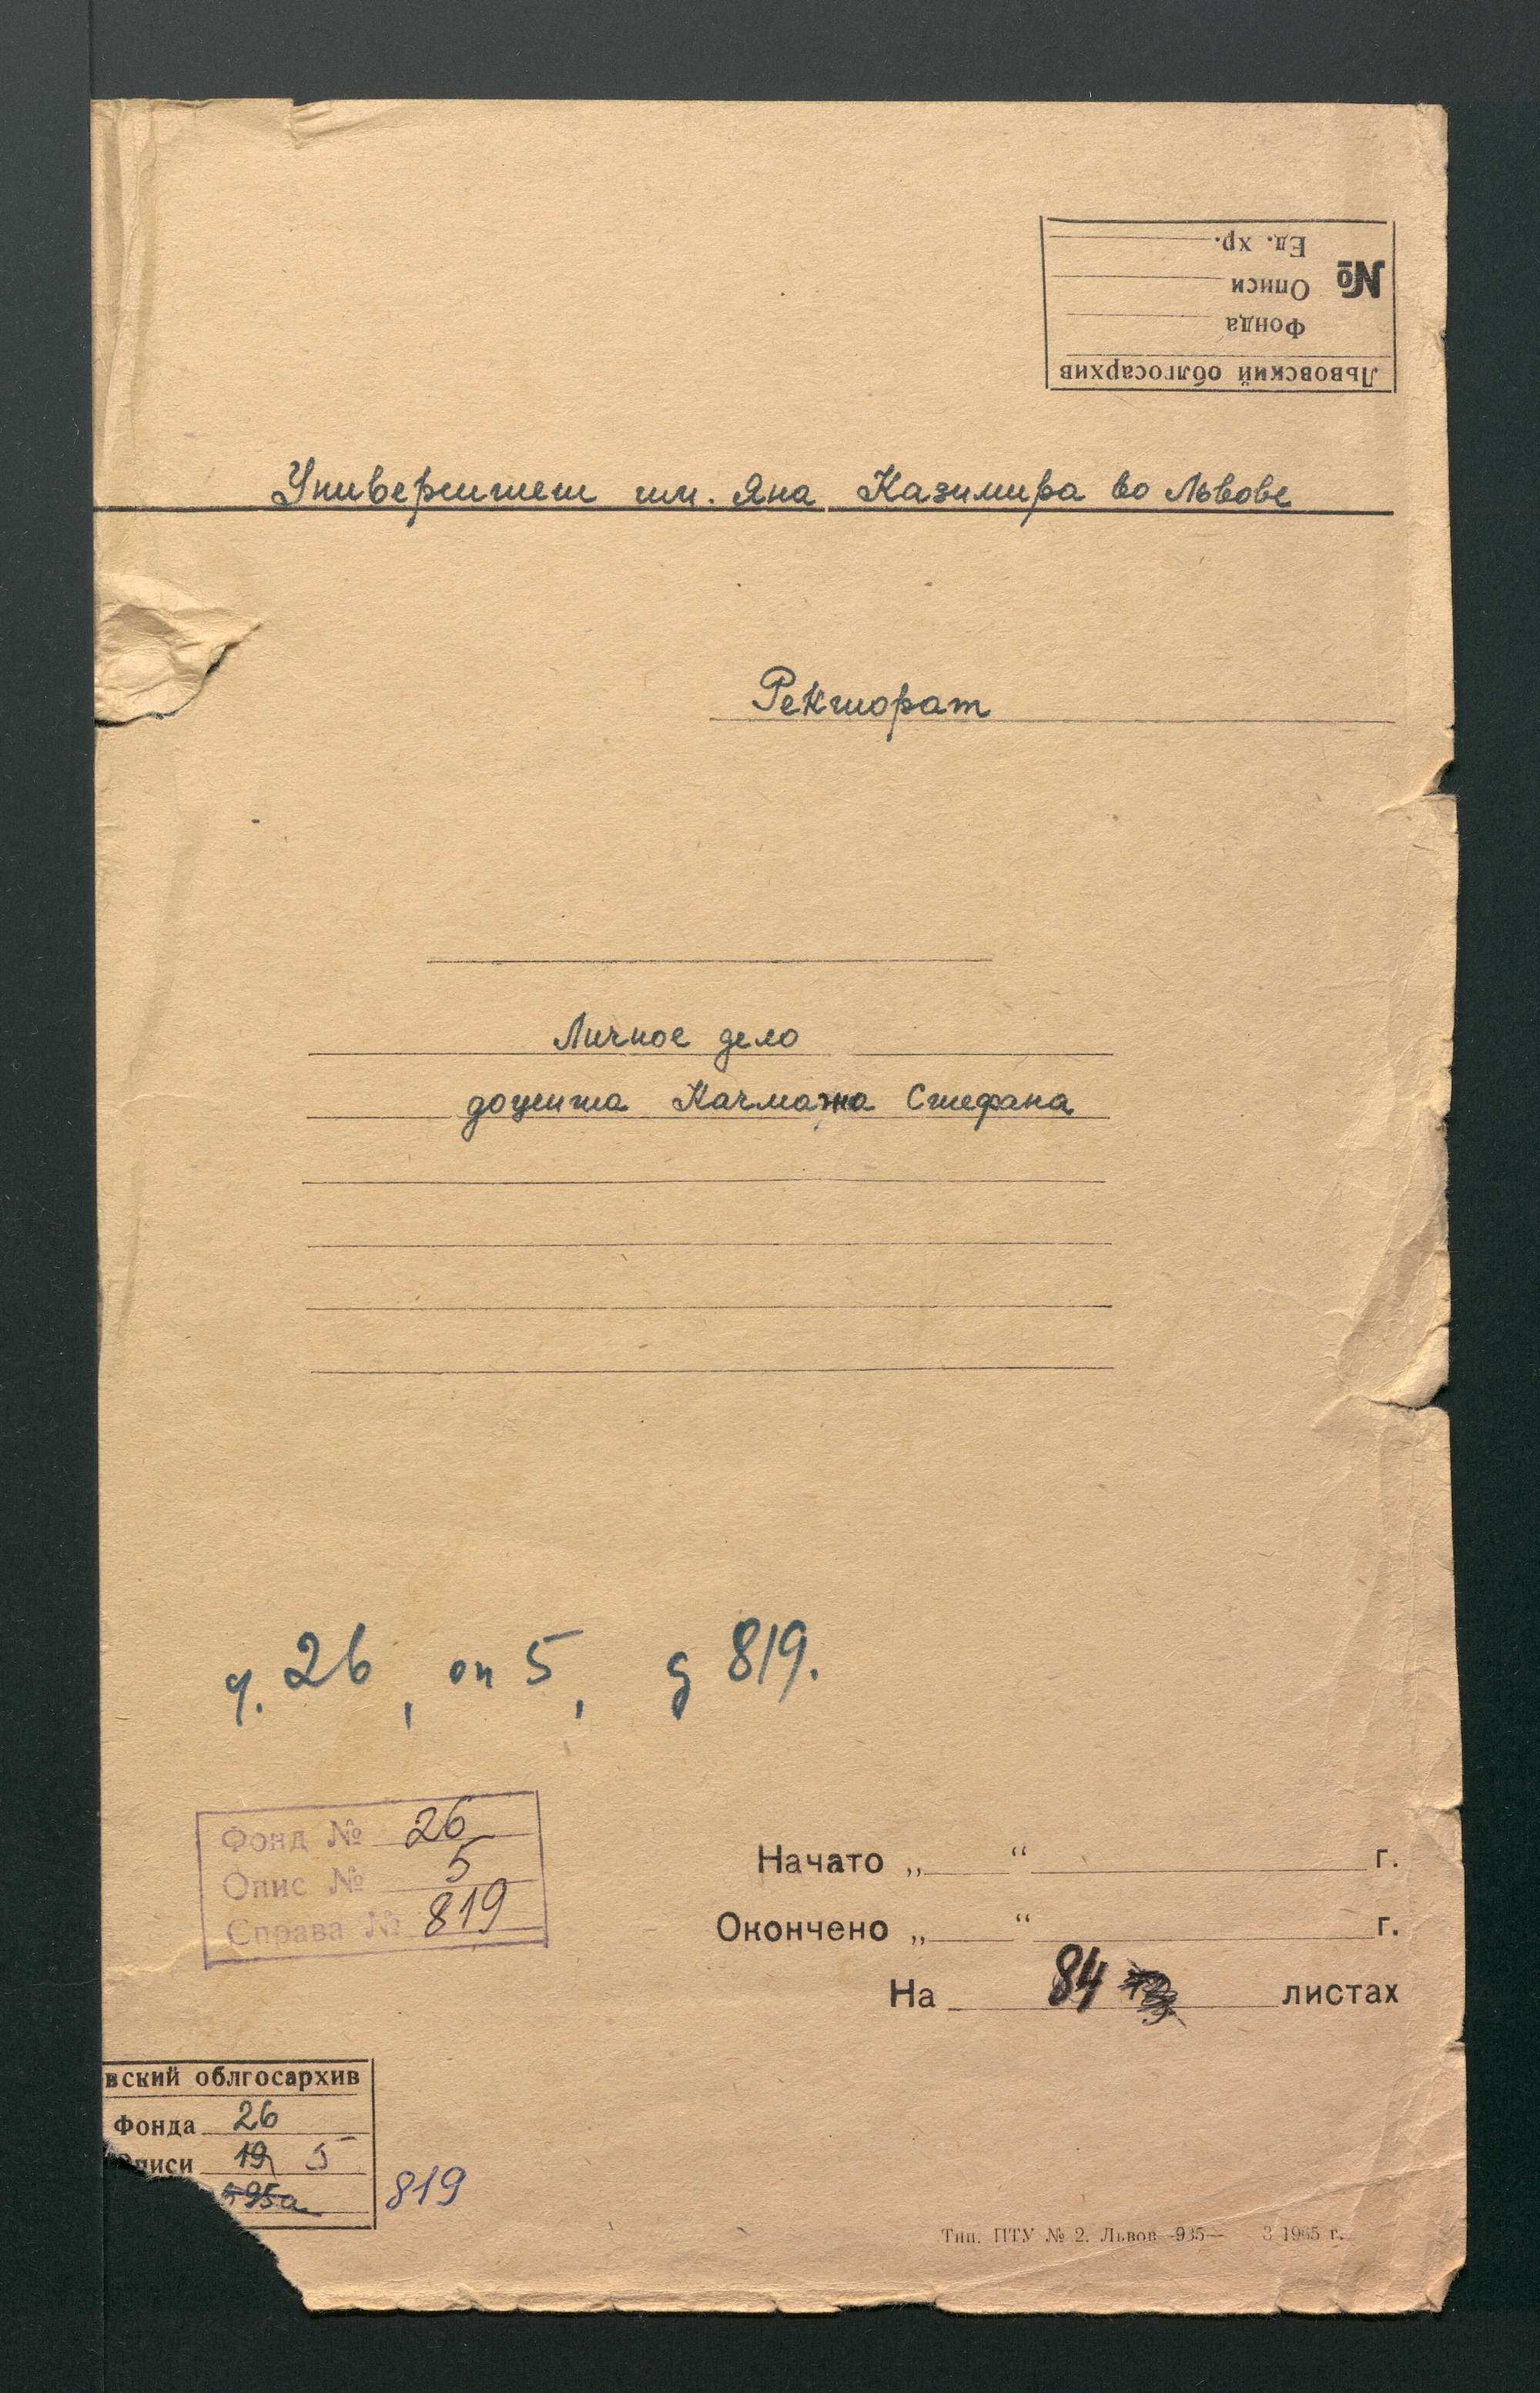 Львовский облгосархив
Фонда
№ Описи
Ед. хр.
Университет им. Яна Казимира во Львове
Ректорат
Личное дело
доцента Качмажа Стефана
ф. 26, оп 5, д 819.
Фонд № 26
Опис № 5
Справа № 819
Начато „ “ г.
Окончено „ “ г.
На 84 листах
вский облгосархив
Фонда 26
Описи 19 5
595а 819
Тип. ПТУ № 2. Львов —935— 3 1965 г.